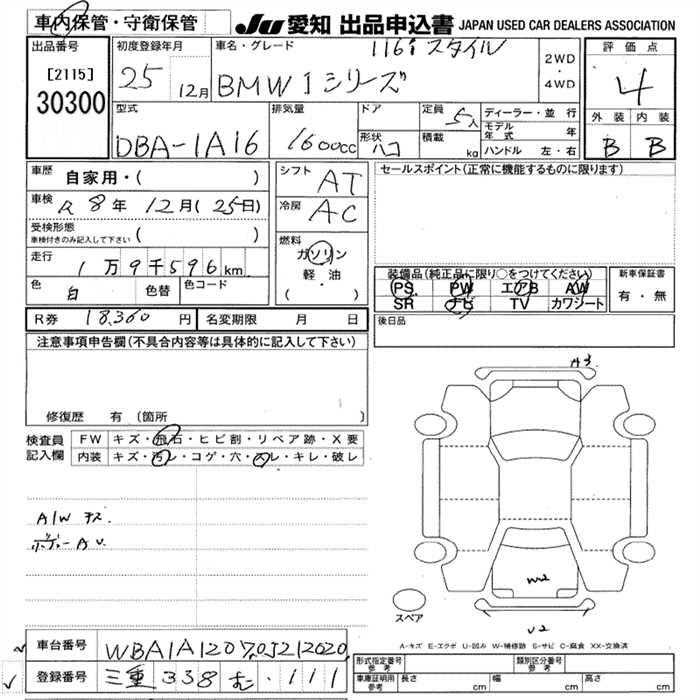 車内保管・守衛保管
JU 愛知 出品申込書 JAPAN USED CAR DEALERS ASSOCIATION
出品番号
[2115]
30300
初度登録年月
25 12月
車名・グレード
116i スタイル
BMW 1シリーズ
2WD
・
4WD
評価点
4
外装 内装
B B
型式
DBA-1A16
排気量
1600cc
ドア
形状
ハコ
定員
5人
積載
kg
ディーラー・並行
モデル年式 年
ハンドル 左・右
車歴
自家用・( )
車検
R8年12月(25日)
受検形態
車検付きのみ記入して下さい ( )
走行
1万9千596km
色
白
色替
色コード
シフト
AT
冷房
AC
燃料
ガソリン
軽・油
( )
セールスポイント(正常に機能するものに限ります)
装備品(純正品に限り○をつけてください)
PS PW エアB AW
SR ナビ TV カワシート
新車保証書
有・無
後日品
R券 18,360円 名変期限 月 日
注意事項申告欄(不具合内容等は具体的に記入して下さい)
修復歴 有 〔箇所 〕
検査員
記入欄
FW キズ・飛石・ヒビ割・リペア跡・X要
内装 キズ・汚レ・コゲ・穴・スレ・キレ・破レ
A/W キズ.
ボデーAU
A3
W2
U2
スペア
A-キズ E-エクボ U-凹み W-補修跡 S-サビ C-腐食 XX-交換済
車台番号 WBA1A12070J212020
登録番号 三重 338 す ・111
形式指定番号
参考
類別区分番号
参考
車庫証明用
参考
長さ cm
幅 cm
高さ cm